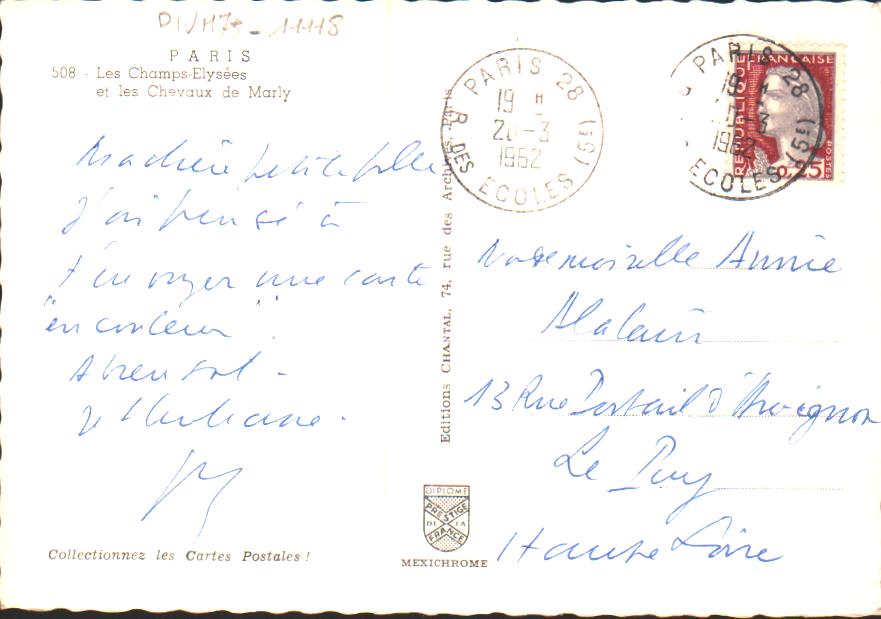 DIVM79-11118
PARIS
508 - Les Champs-Elysées
et les Chevaux de Marly
Ma chère petite fille
J'ai pensé à
t'envoyer une carte
"en couleur".
A bientôt -
Je t'embrasse.
Collectionnez les Cartes Postales !
Editions CHANTAL, 74, rue des Archives, Paris
DIPLOME
PRESTIGE
DE LA
FRANCE
MEXICHROME
PARIS 28
19 H
-3
1962
R. DES ECOLES (5E)
PARIS 28
19 H
-3
1962
ECOLES (5E)
REPUBLIQUE FRANÇAISE
0,25
POSTES
Mademoiselle Annie
Alalain
13 Rue Portail d'Avignon
Le Puy
Haute Loire